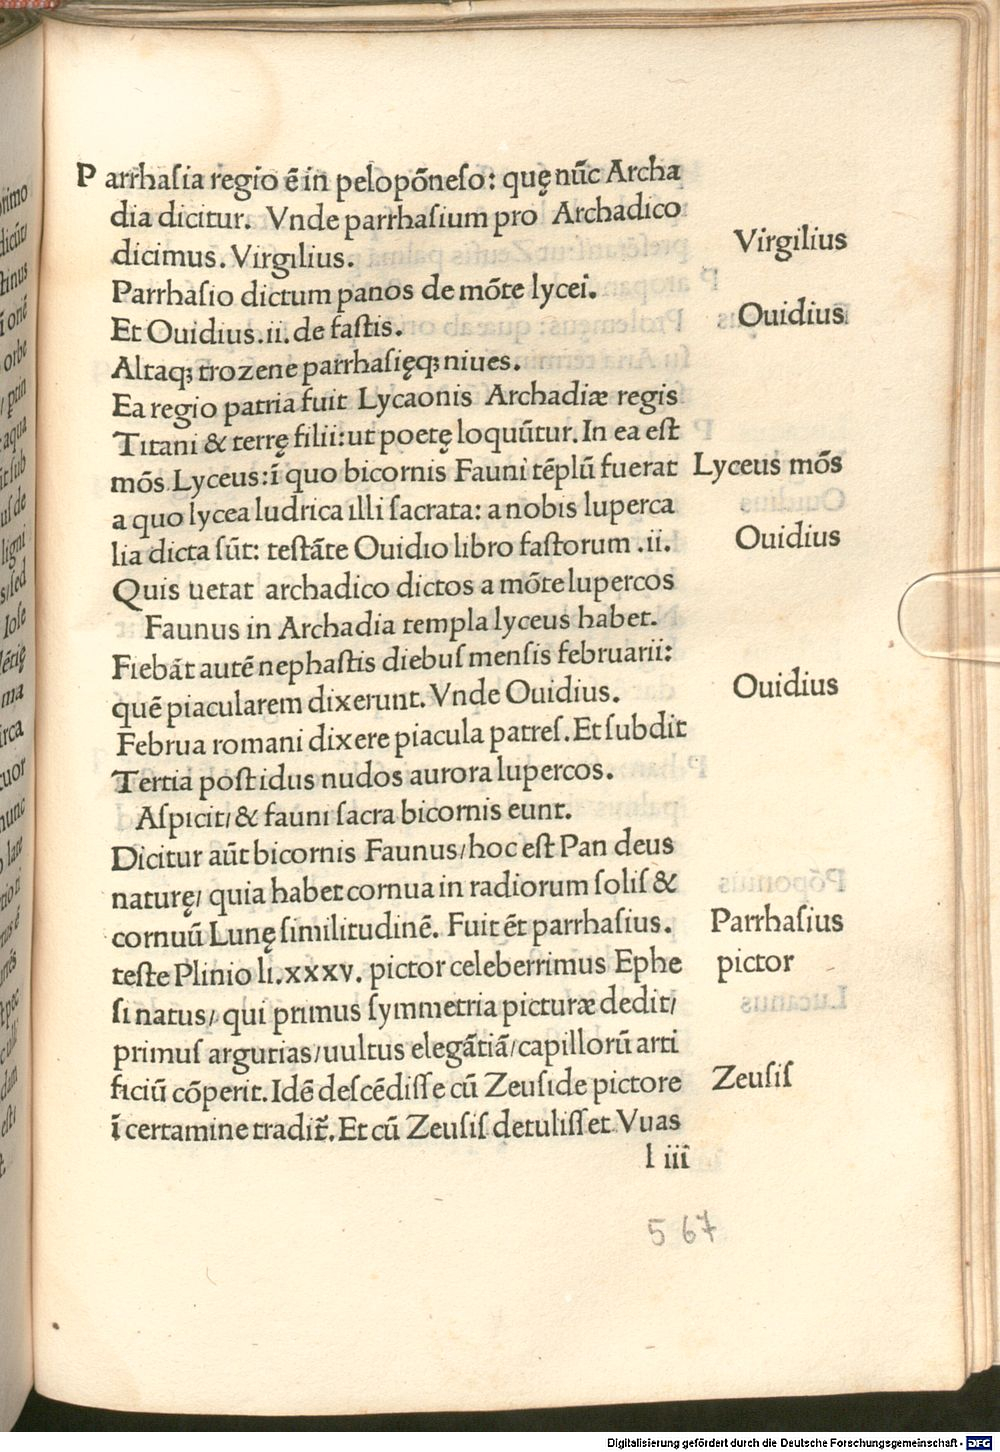 Parrhaſia regio ē in pelopōneſo: quę nūc Archa
dia dicitur. Vnde parrhaſium pro Archadico
dicimus. Virgilius.
Virgilius
Parrhaſio dictum panos de mōte lycei.
Et Ouidius.ii. de faſtis.
Ouidius
Altaqꝫ trozene parrhaſięqꝫ niues.
Ea regio patria fuit Lycaonis Archadiæ regis
Titani & terrę filii: ut poetę loquūtur. In ea eſt
mōs Lyceus: ī quo bicornis Fauni tēplū fuerat
Lyceus mōs
a quo lycea ludrica illi ſacrata: a nobis luperca
lia dicta ſūt: teſtāte Ouidio libro faſtorum .ii.
Ouidius
Quis uetat archadico dictos a mōte lupercos
Faunus in Archadia templa lyceus habet.
Fiebāt autē nephaſtis diebuſ menſis februarii:
quē piacularem dixerunt. Vnde Ouidius.
Ouidius
Februa romani dixere piacula patreſ. Et ſubdit
Tertia poſt idus nudos aurora lupercos.
Aſpicit/ & fauni ſacra bicornis eunt.
Dicitur aūt bicornis Faunus/ hoc eſt Pan deus
naturę/ quia habet cornua in radiorum ſoliſ &
cornuū Lunę ſimilitudinē. Fuit ēt parrhaſius.
Parrhaſius
teſte Plinio li.xxxv. pictor celeberrimus Ephe
pictor
ſi natus/ qui primus ſymmetria picturæ dedit/
primuſ argutias/ uultus elegātiā/ capillorū arti
ficiū cōperit. Idē deſcēdiſſe cū Zeuſide pictore
Zeuſiſ
ī certamine tradit̄. Et cū Zeuſiſ detuliſſet Vuas
l iii
567
Digitalisierung gefördert durch die Deutsche Forschungsgemeinschaft - DFG